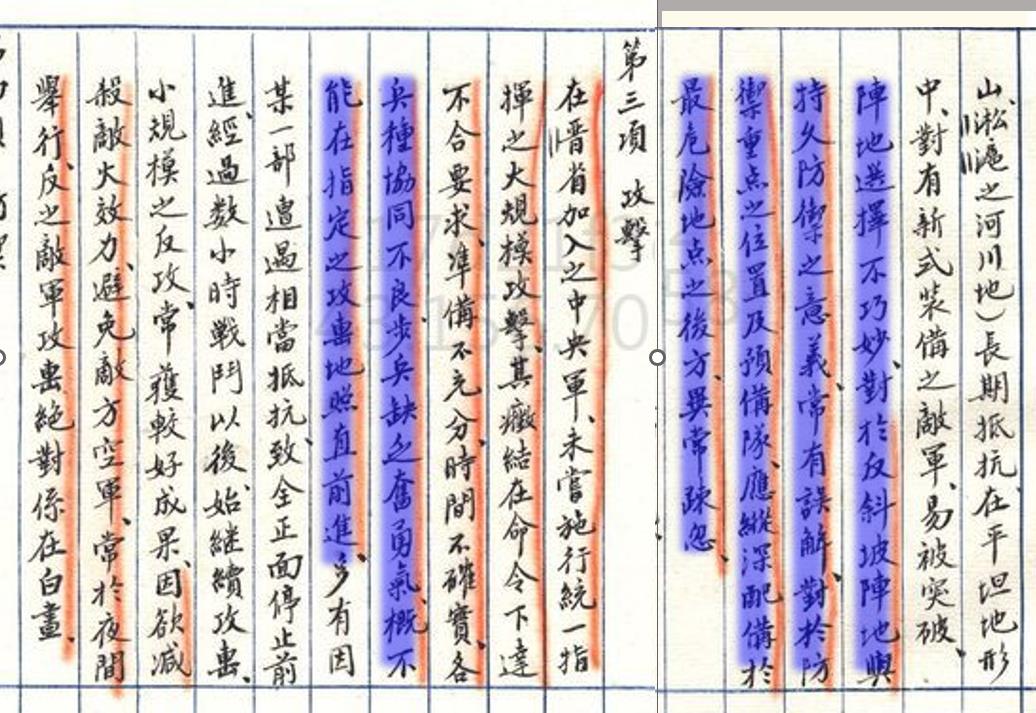 山、淞滬之河川地）長期抵抗、在平坦地形
中、對有新式裝備之敵軍、易被突破、
陣地選擇不巧妙、對於反斜坡陣地與
持久防禦之意義、常有誤解、對於防
禦重点之位置及預備隊、應縱深配備於
最危險地点之後方、異常疎忽、
第三項　攻擊
在晋省加入之中央軍、未嘗施行統一指
揮之大規模攻擊、其癥結在命令下達
不合要求、準備不充分、時間不確實、各
兵種協同不良、步兵缺乏奮勇氣概、不
能在指定之攻击地照直前進、多有因
某一部遭過相當抵抗、致全正面停止前
進、經過数小時戰鬥以後、始継續攻击、
小規模之反攻、常獲較好成果、因欲減
殺敵火效力、避免敵方空軍、常於夜間
舉行、反之敵軍攻击絕對係在白晝、